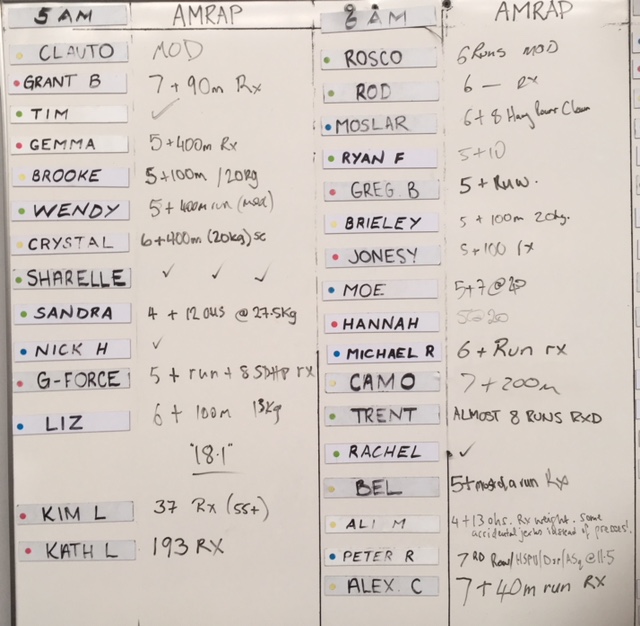 5 AM AMRAP
CLAUTO MOD
GRANT B 7 + 90m Rx
TIM ✓
GEMMA 5+400m Rx
BROOKE 5+100m /20kg
WENDY 5+400m run (mod)
CRYSTAL 6+400m (20kg) sc
SHARELLE ✓ ✓ ✓
SANDRA 4 + 12 OHS @ 27.5kg
NICK H ✓
G-FORCE 5 + run + 8 SDHP rx
LIZ 6 + 100m 13kg
"18.1"
KIM L 37 Rx (55+)
KATH L 193 RX
8 AM AMRAP
ROSCO 6 Runs MOD
ROD 6 — Rx
MOSLAR 6+ 8 Hang Power Clean
RYAN F 5+10
GREG B 5 + RUN.
BRIELEY 5 + 100m 20kg.
JONESY 5+100 rx
MOE 5+7 @ 20
HANNAH 5@20
MICHAEL R 6 + Run rx
CAMO 7+200m
TRENT ALMOST 8 RUNS RXD
RACHEL ✓
BEL 5+most of a run Rx
ALI M 4+13 ohs. Rx weight. Some
accidental jerks instead of presses!
PETER R 7 RD Row/HSPU/ @ 11.5
ALEX C 7+40m run RX